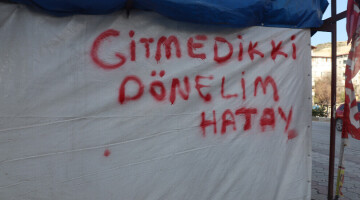 GİTMEDİKKİ
DÖNELİM
HATAY